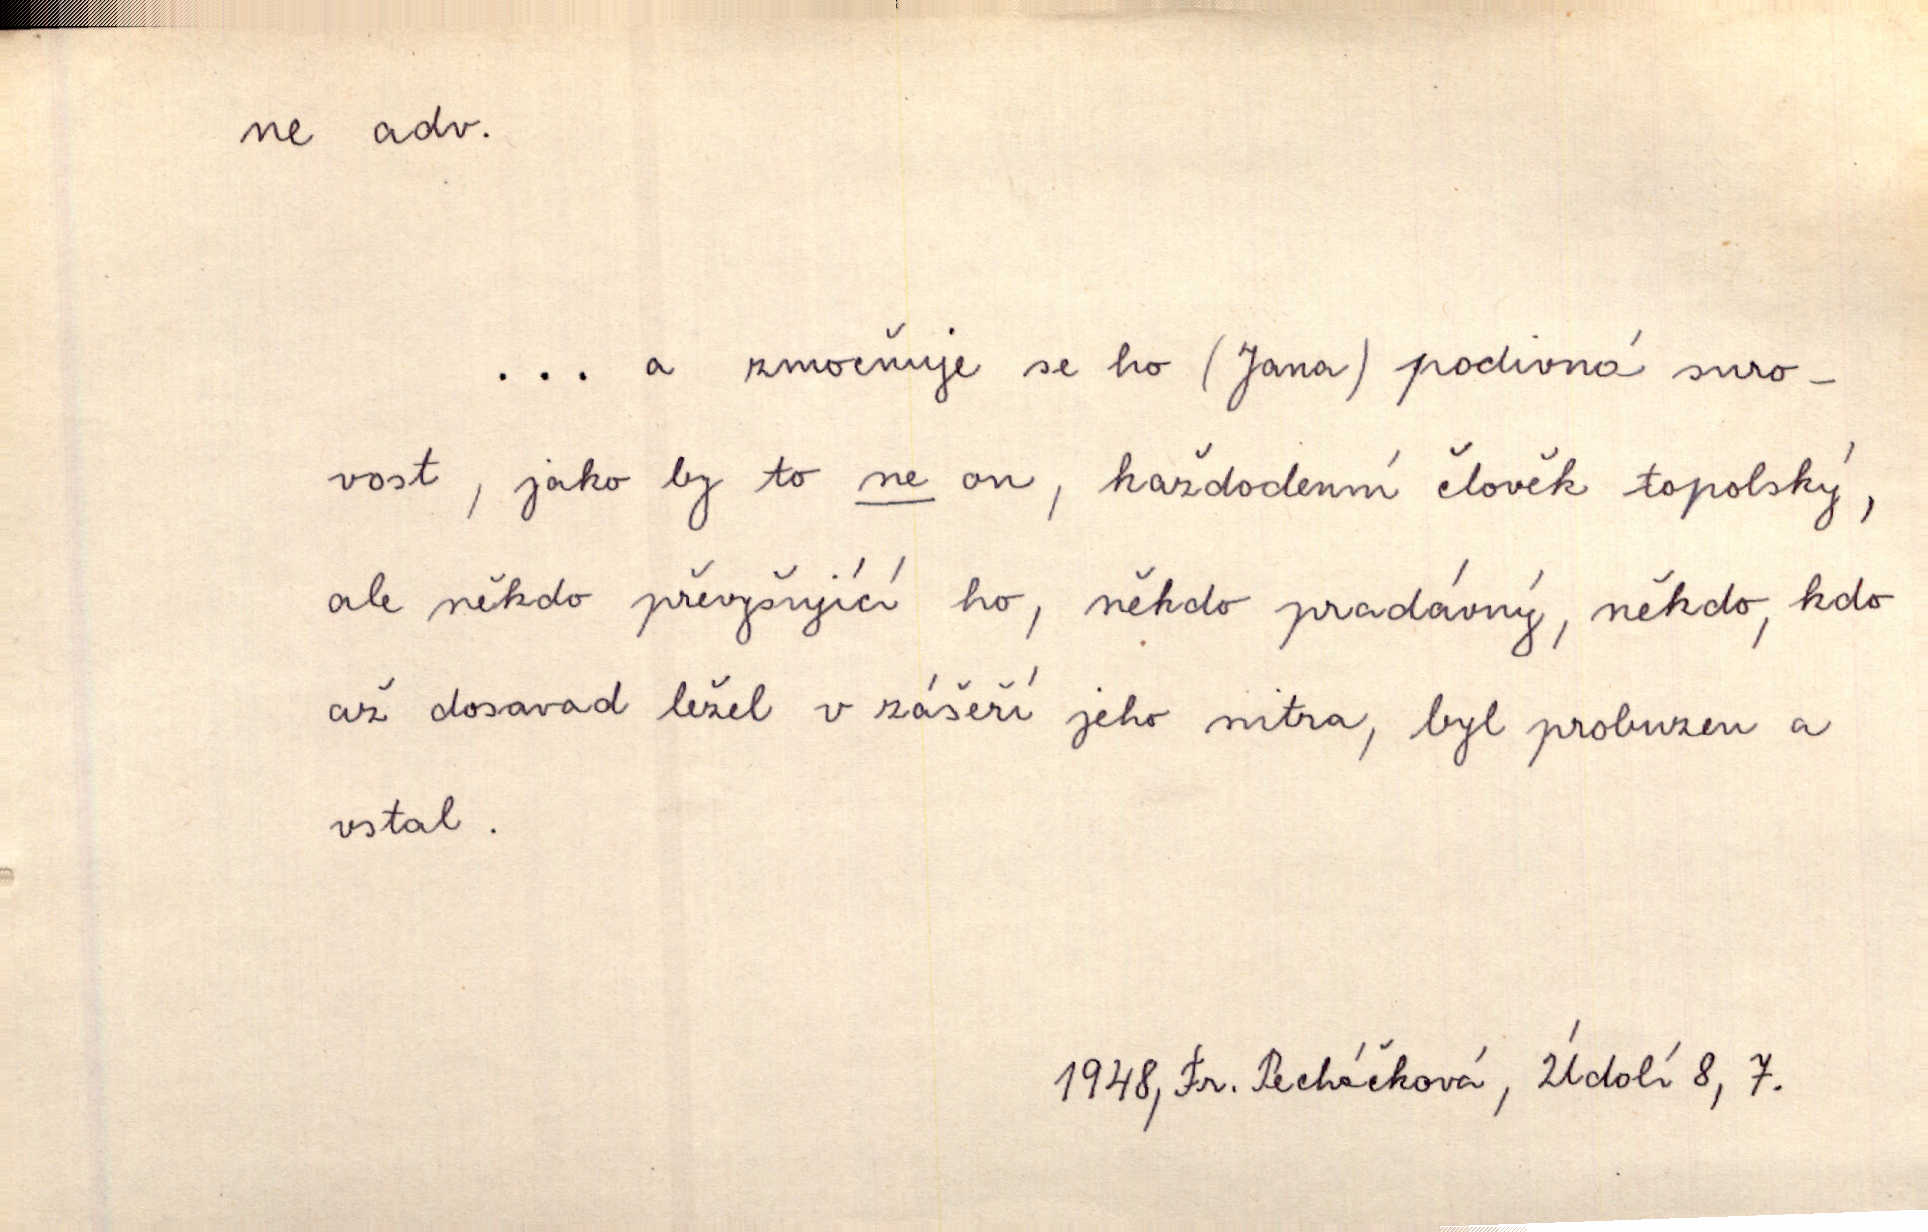 ne adv.
... a zmocňuje se ho (Jana) podivná suro-
vost, jako by to ne on, každodenní člověk topolský,
ale někdo převyšující ho, někdo pradávný, někdo, kdo
až dosavad ležel v zášeří jeho nitra, byl probuzen a
vstal.
1948, Fr. Pecháčková, Údolí 8, 7.